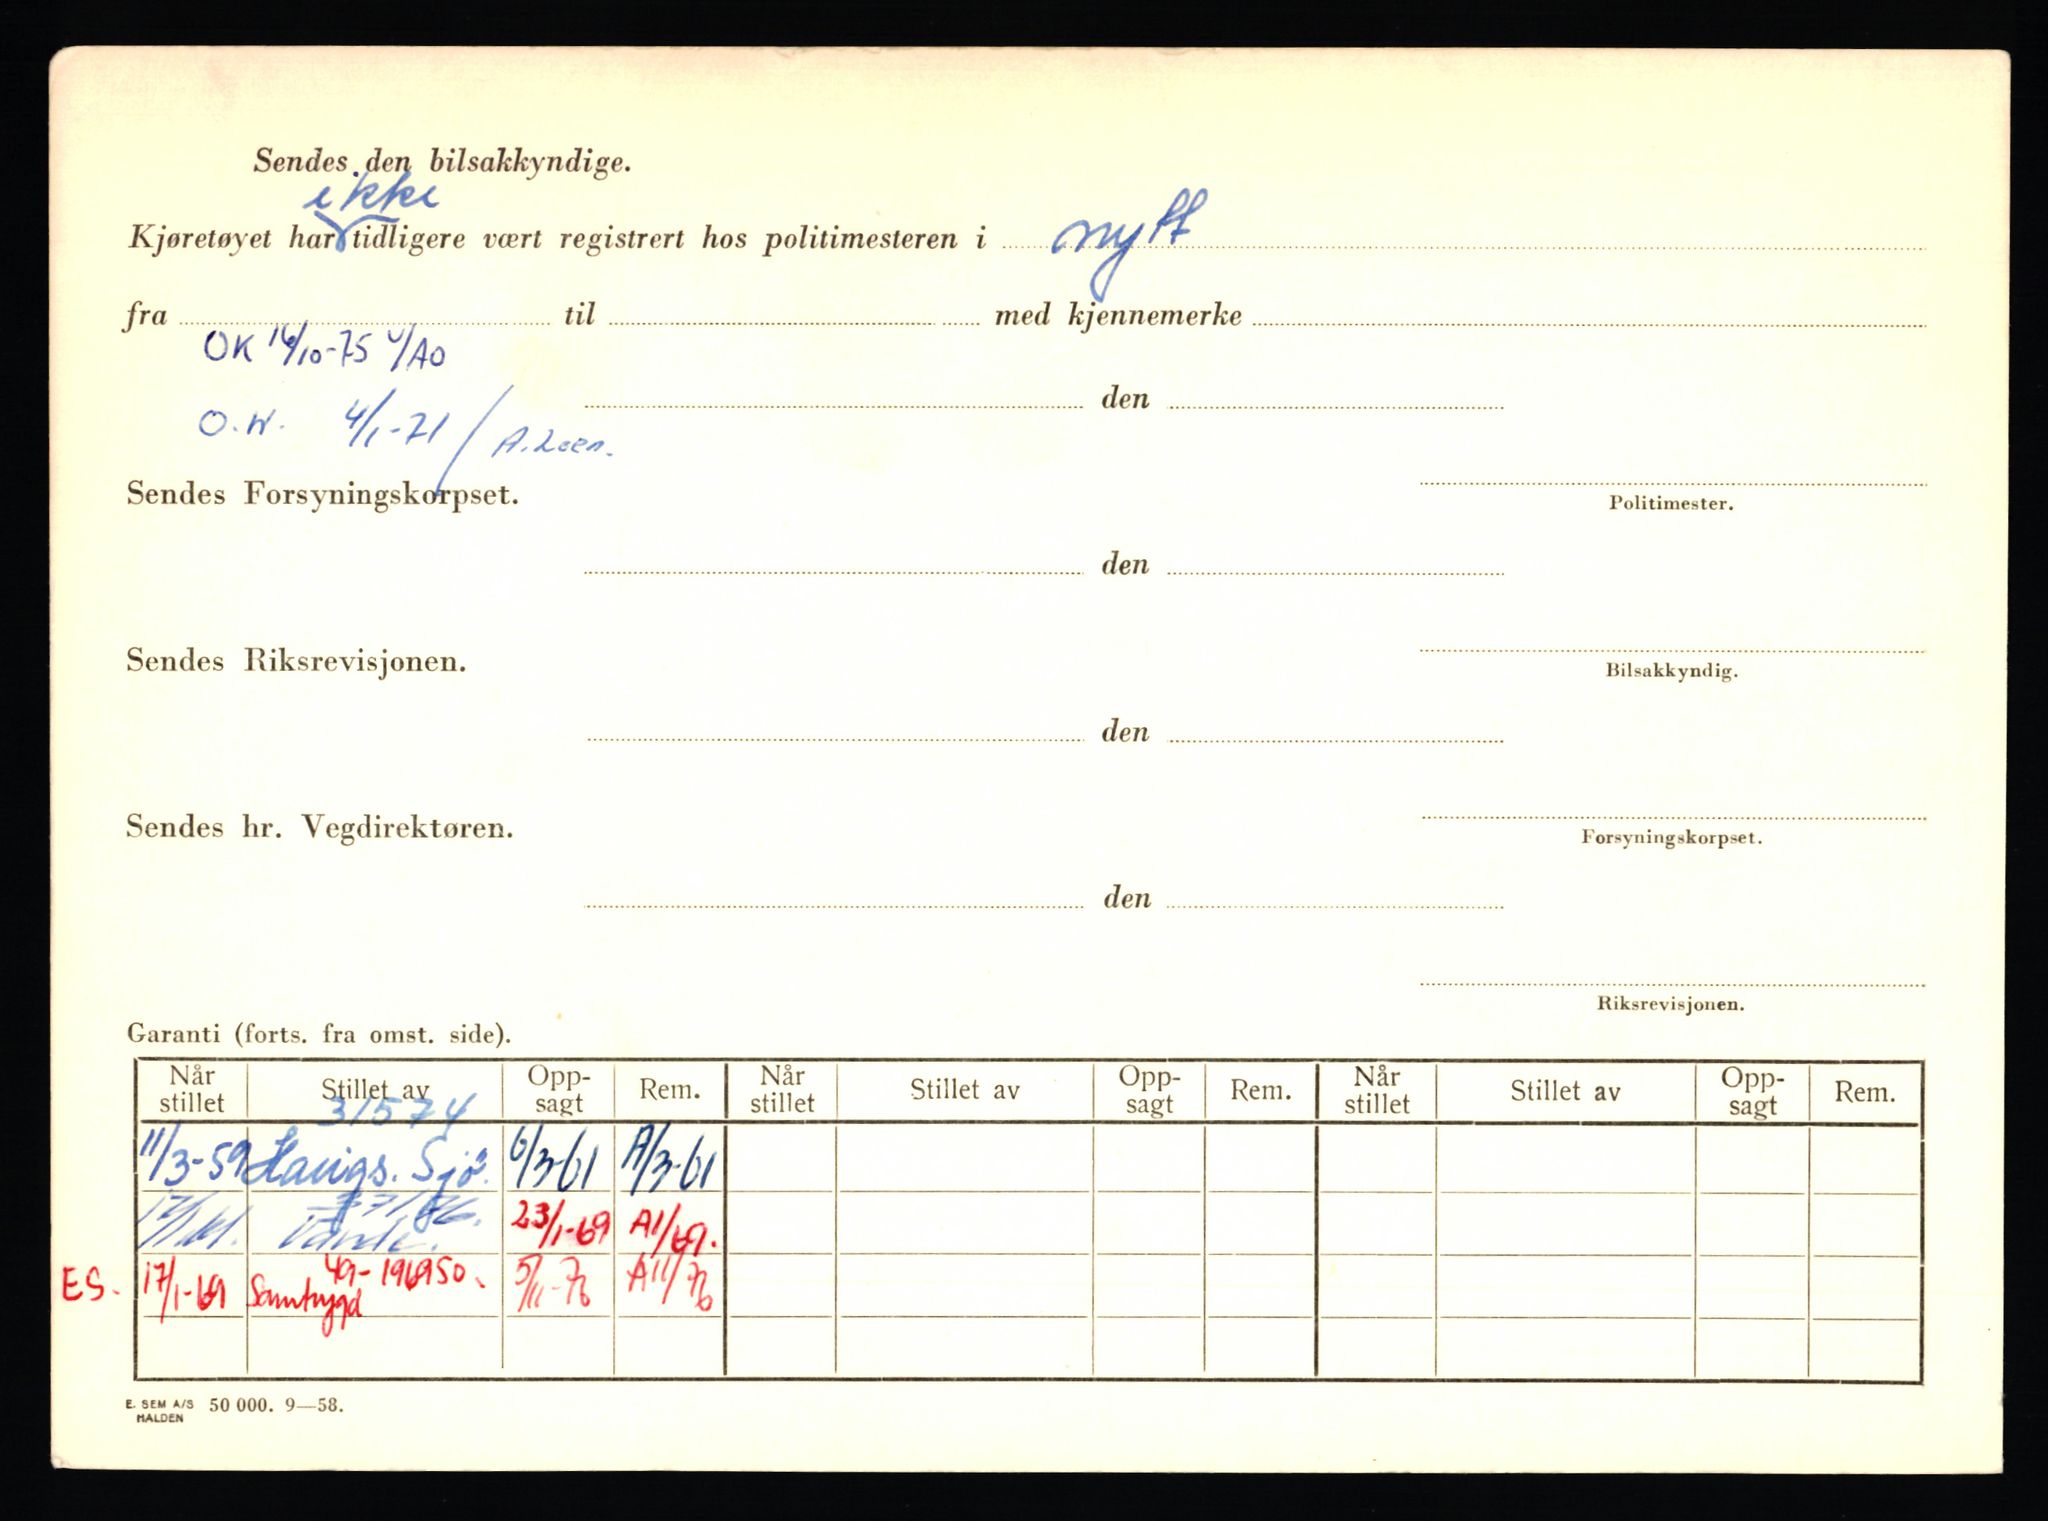 Sendes den bilsakkyndige.
ikke
Kjøretøyet har tidligere vært registrert hos politimesteren i nytt
fra til med kjennemerke
OK 16/10-75 /AO
den
O.W. 4/1-71 / A.
Sendes Forsyningskorpset.
Politimester.
den
Sendes Riksrevisjonen.
Bilsakkyndig.
den
Sendes hr. Vegdirektøren.
Forsyningskorpset.
den
Riksrevisjonen.
Garanti (forts. fra omst. side).
Når stillet Stillet av Opp-sagt Rem. Når stillet Stillet av Opp-sagt Rem. Når stillet Stillet av Opp-sagt Rem.
31574
11/3-59 Haugs. Sjø. 6/3-61 A/3-61
23/1-69 A1/69.
49-196950.
ES. 17/1-69 Samtrygd 5/11-76 A11/76
E. SEM A/S HALDEN 50 000. 9—58.